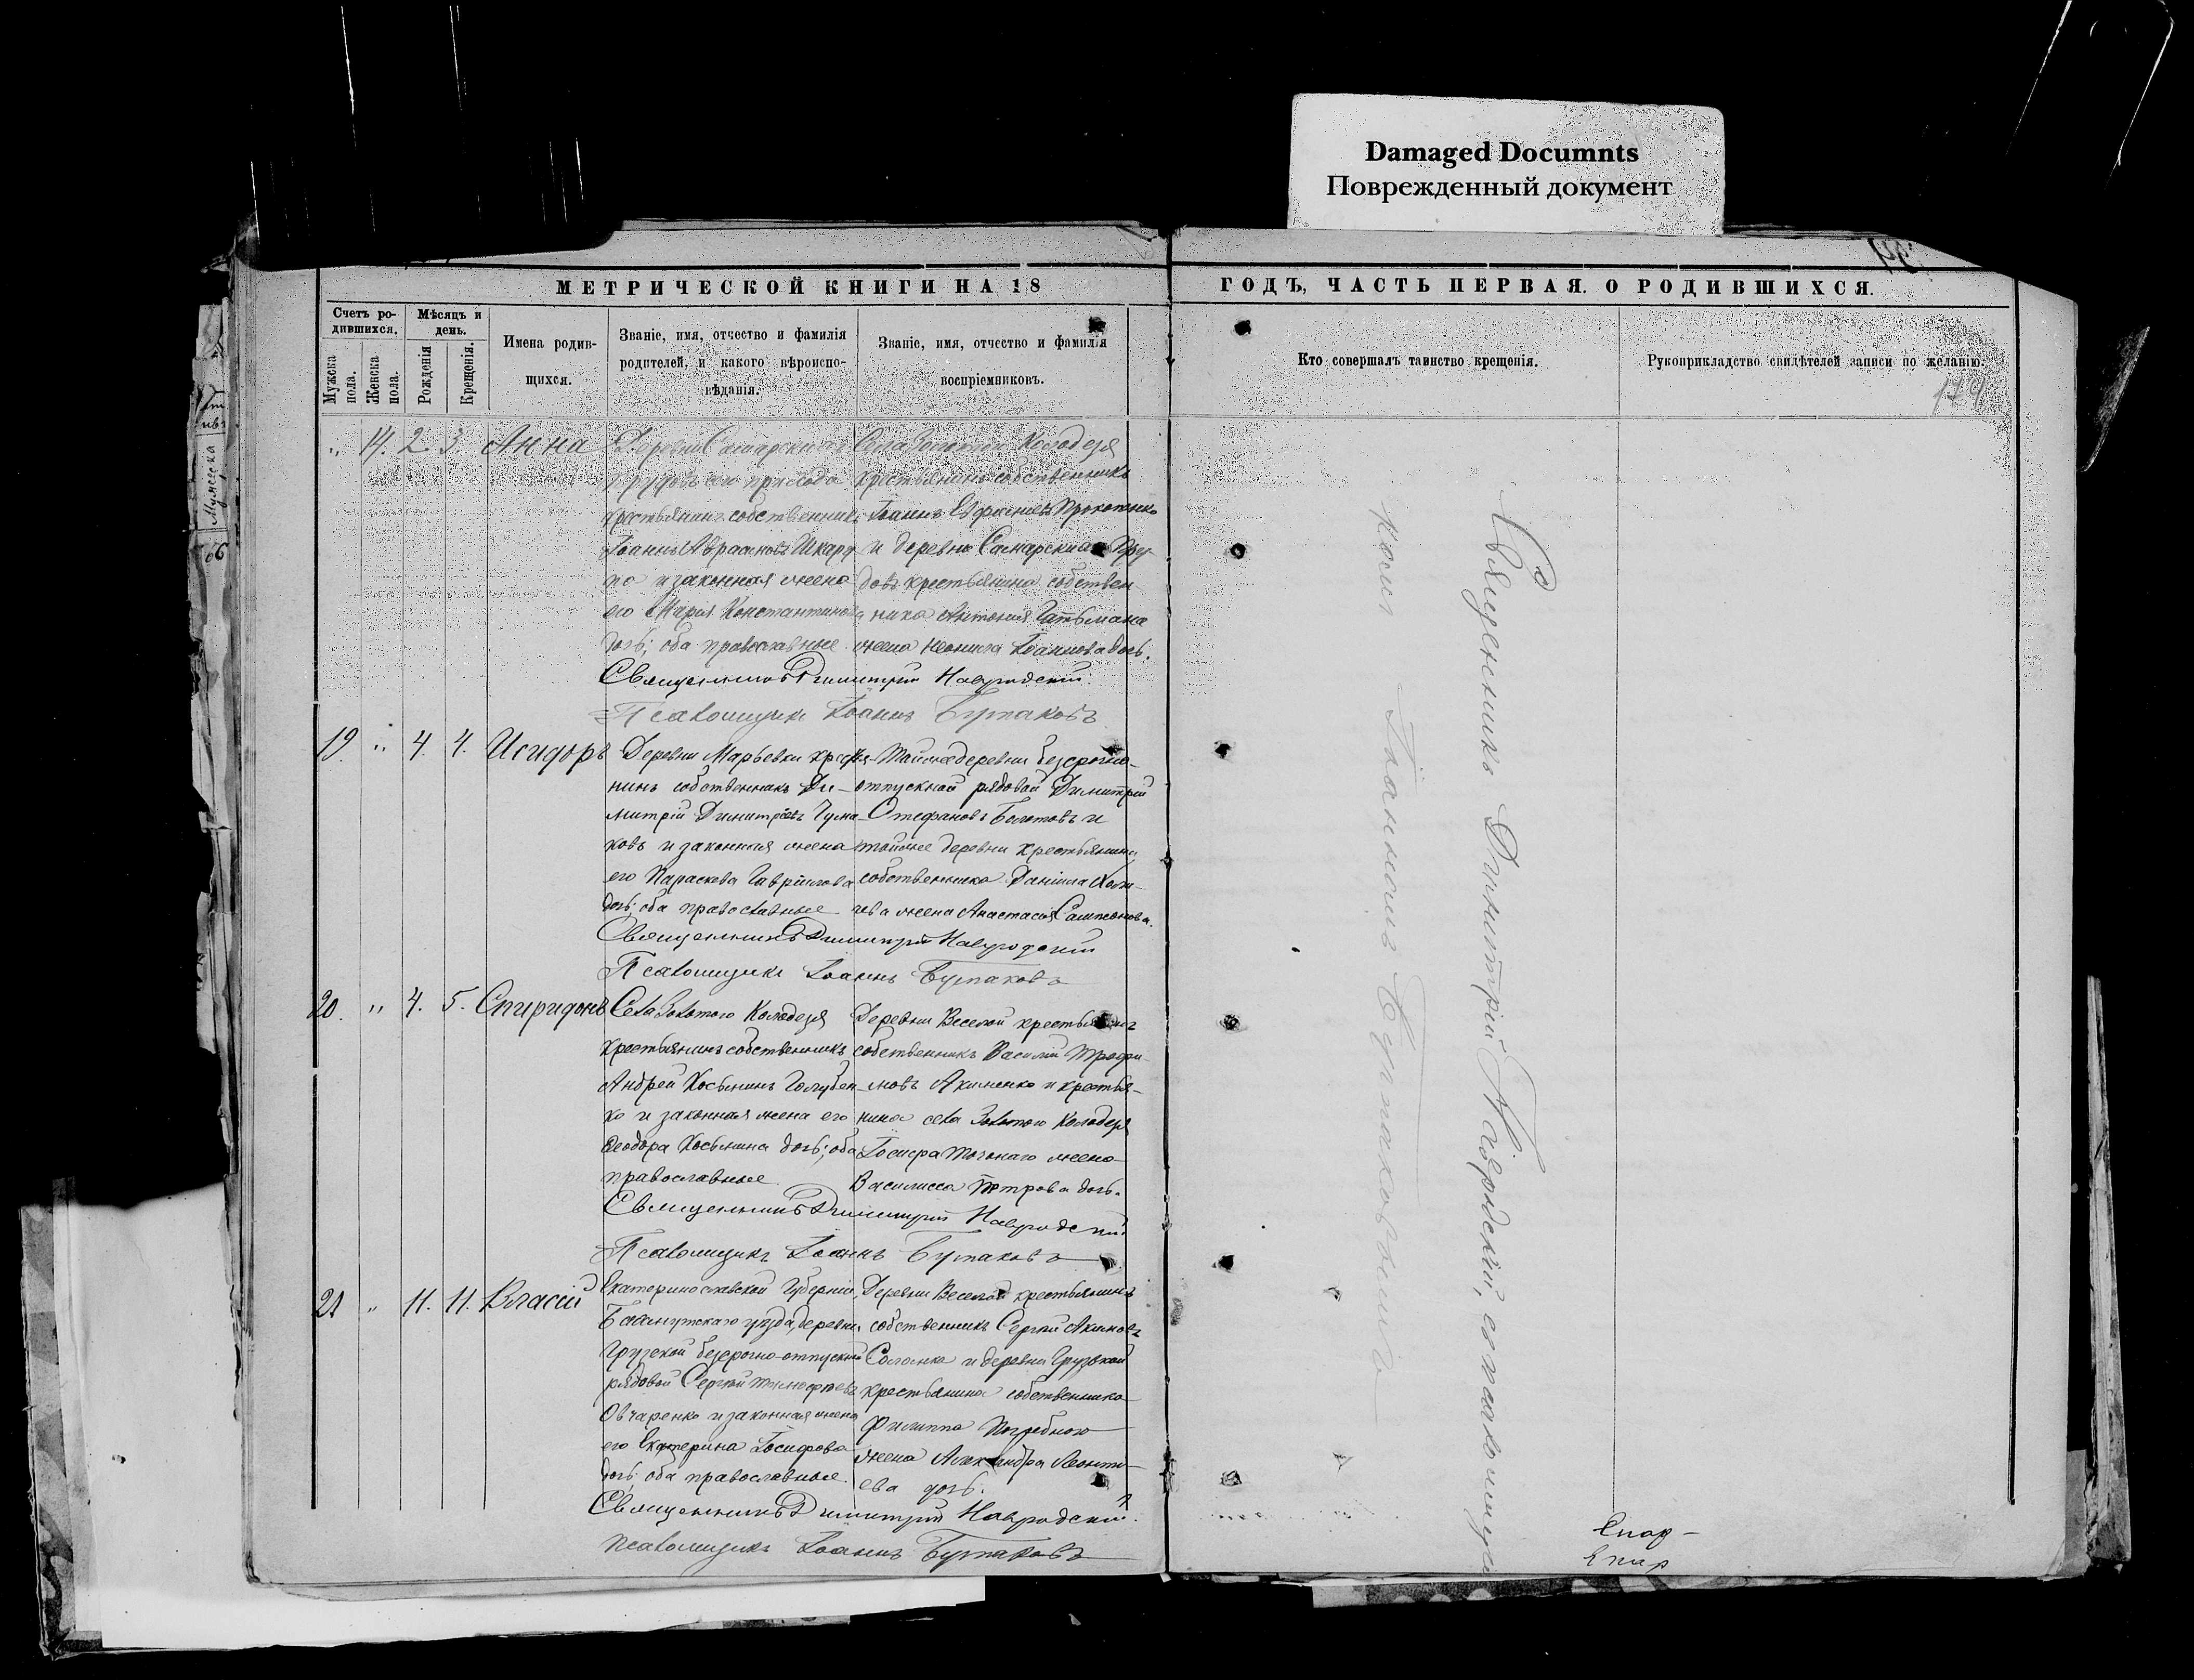 Damaged Documnts
Поврежденный документ
МЕТРИЧЕСКОЙ КНИГИ НА 18
ГОДЪ, ЧАСТЬ ПЕРВАЯ. О РОДИВШИХСЯ.
Счетъ родившихся.
Мужска пола.
Женска пола.
Мѣсяцъ и день.
Рожденія
Крещенія.
Имена родившихся.
Званіе, имя, отчество и фамилія родителей, и какого вѣроисповѣданія.
Званіе, имя, отчество и фамилія воспріемниковъ.
Кто совершалъ таинство крещенія.
Рукоприкладство свидѣтелей записи по желанію.
„ 14. 2. 3. Анна
Деревни Самарскихъ
Прудовъ сего прихода
крестьянинъ собственникъ
Іоаннъ Авраамовъ Шкару
по и законная жена
его Марія Константинова
дочь; оба православные
Села Золотого Колодезя
крестьянинъ собственникъ
Іоаннъ Евфиміевъ Прокопенко
и деревни Самарскихъ Пру
довъ крестьянина собствен
ника Антонія Гатьмана
жена Неонила Іоаннова дочь.
Священникъ Димитрій Навродскій
Псаломщикъ Іоаннъ Бутаковъ
19. „ 4. 4. Исидоръ
Деревни Марьевки крестья-
нинъ собственникъ Ди-
митрій Димитріевъ Чума-
ковъ и законная жена
его Параскева Гавріилова
дочь; оба православные
Той же деревни безсрочно-
отпускной рядовой Димитрій
Стефановъ Болотовъ и
той же деревни крестьянина
собственника Даніила
жена Анастасія
Священникъ Димитрій Навродскій
Псаломщикъ Іоаннъ Бутаковъ
20. „ 4. 5. Спиридонъ
Села Золотого Колодезя
крестьянинъ собственникъ
Андрей Косьминъ Голубен-
ко и законная жена его
Феодора Косьмина дочь; оба
православные.
Деревни Веселой крестьянинъ
собственникъ Василій Трофи-
мовъ Акименко и крестья-
нина села Золотого Колодезя
Іосифа Точонаго жена
Василисса Петрова дочь.
Священникъ Димитрій Навродскій
Псаломщикъ Іоаннъ Бутаковъ
21 „ 11. 11. Власій
Екатеринославской Губерніи,
Бахмутскаго уѣзда, деревни
Грузской безсрочно-отпускной
рядовой Сергѣй Тимофеевъ
Овчаренко и законная жена
его Екатерина Іосифова
дочь; оба православные.
Деревни Веселой крестьянинъ
собственникъ Сергѣй Акимовъ
Солонка и деревни Грузской
крестьянина собственника
Филиппа Погребного
жена Александра Леонти-
ева дочь.
Священникъ Димитрій Навродскій.
Псаломщикъ Іоаннъ Бутаковъ
Священникъ Димитрій Навродскій, съ псаломщи
комъ Іоанномъ Бутаковымъ